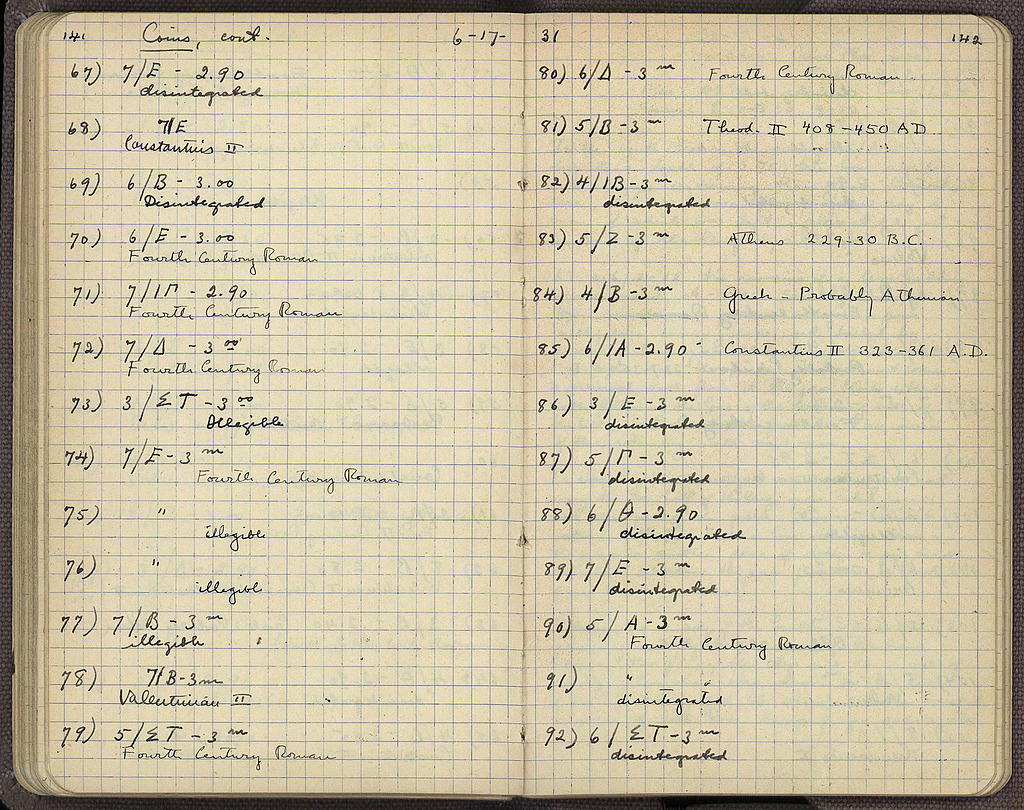 141 Coins, cont. 6-17-
67) 7/E - 2.90
disintegrated
68) 7/E
Constantius II
69) 6/B - 3.00
Disintegrated
70) 6/E - 3.00
Fourth Century Roman
71) 7/ΙΓ - 2.90
Fourth Century Roman
72) 7/Δ - 3 00
Fourth Century Roman
73) 3/ΣΤ - 3 00
Illegible
74) 7/E - 3 m
Fourth Century Roman
75) "
illegible
76) "
illegible
77) 7/B - 3 m
illegible
78) 7/B - 3m
Valentinian II
79) 5/ΣΤ - 3 m
Fourth Century Roman
31 142
80) 6/Δ - 3 m Fourth Century Roman
81) 5/B - 3 m Theod. II 408-450 AD
82) 4/ΙB - 3 m
disintegrated
83) 5/Z - 3 m Athens 229-30 B.C.
84) 4/B - 3 m Greek - Probably Athenian
85) 6/ΙA - 2.90 - Constantius II 323-361 A.D.
86) 3/E - 3 m
disintegrated
87) 5/Γ - 3 m
disintegrated
88) 6/Θ - 2.90
disintegrated
89) 7/E - 3 m
disintegrated
90) 5/A - 3 m
Fourth Century Roman
91) " "
disintegrated
92) 6/ΣΤ - 3 m
disintegrated